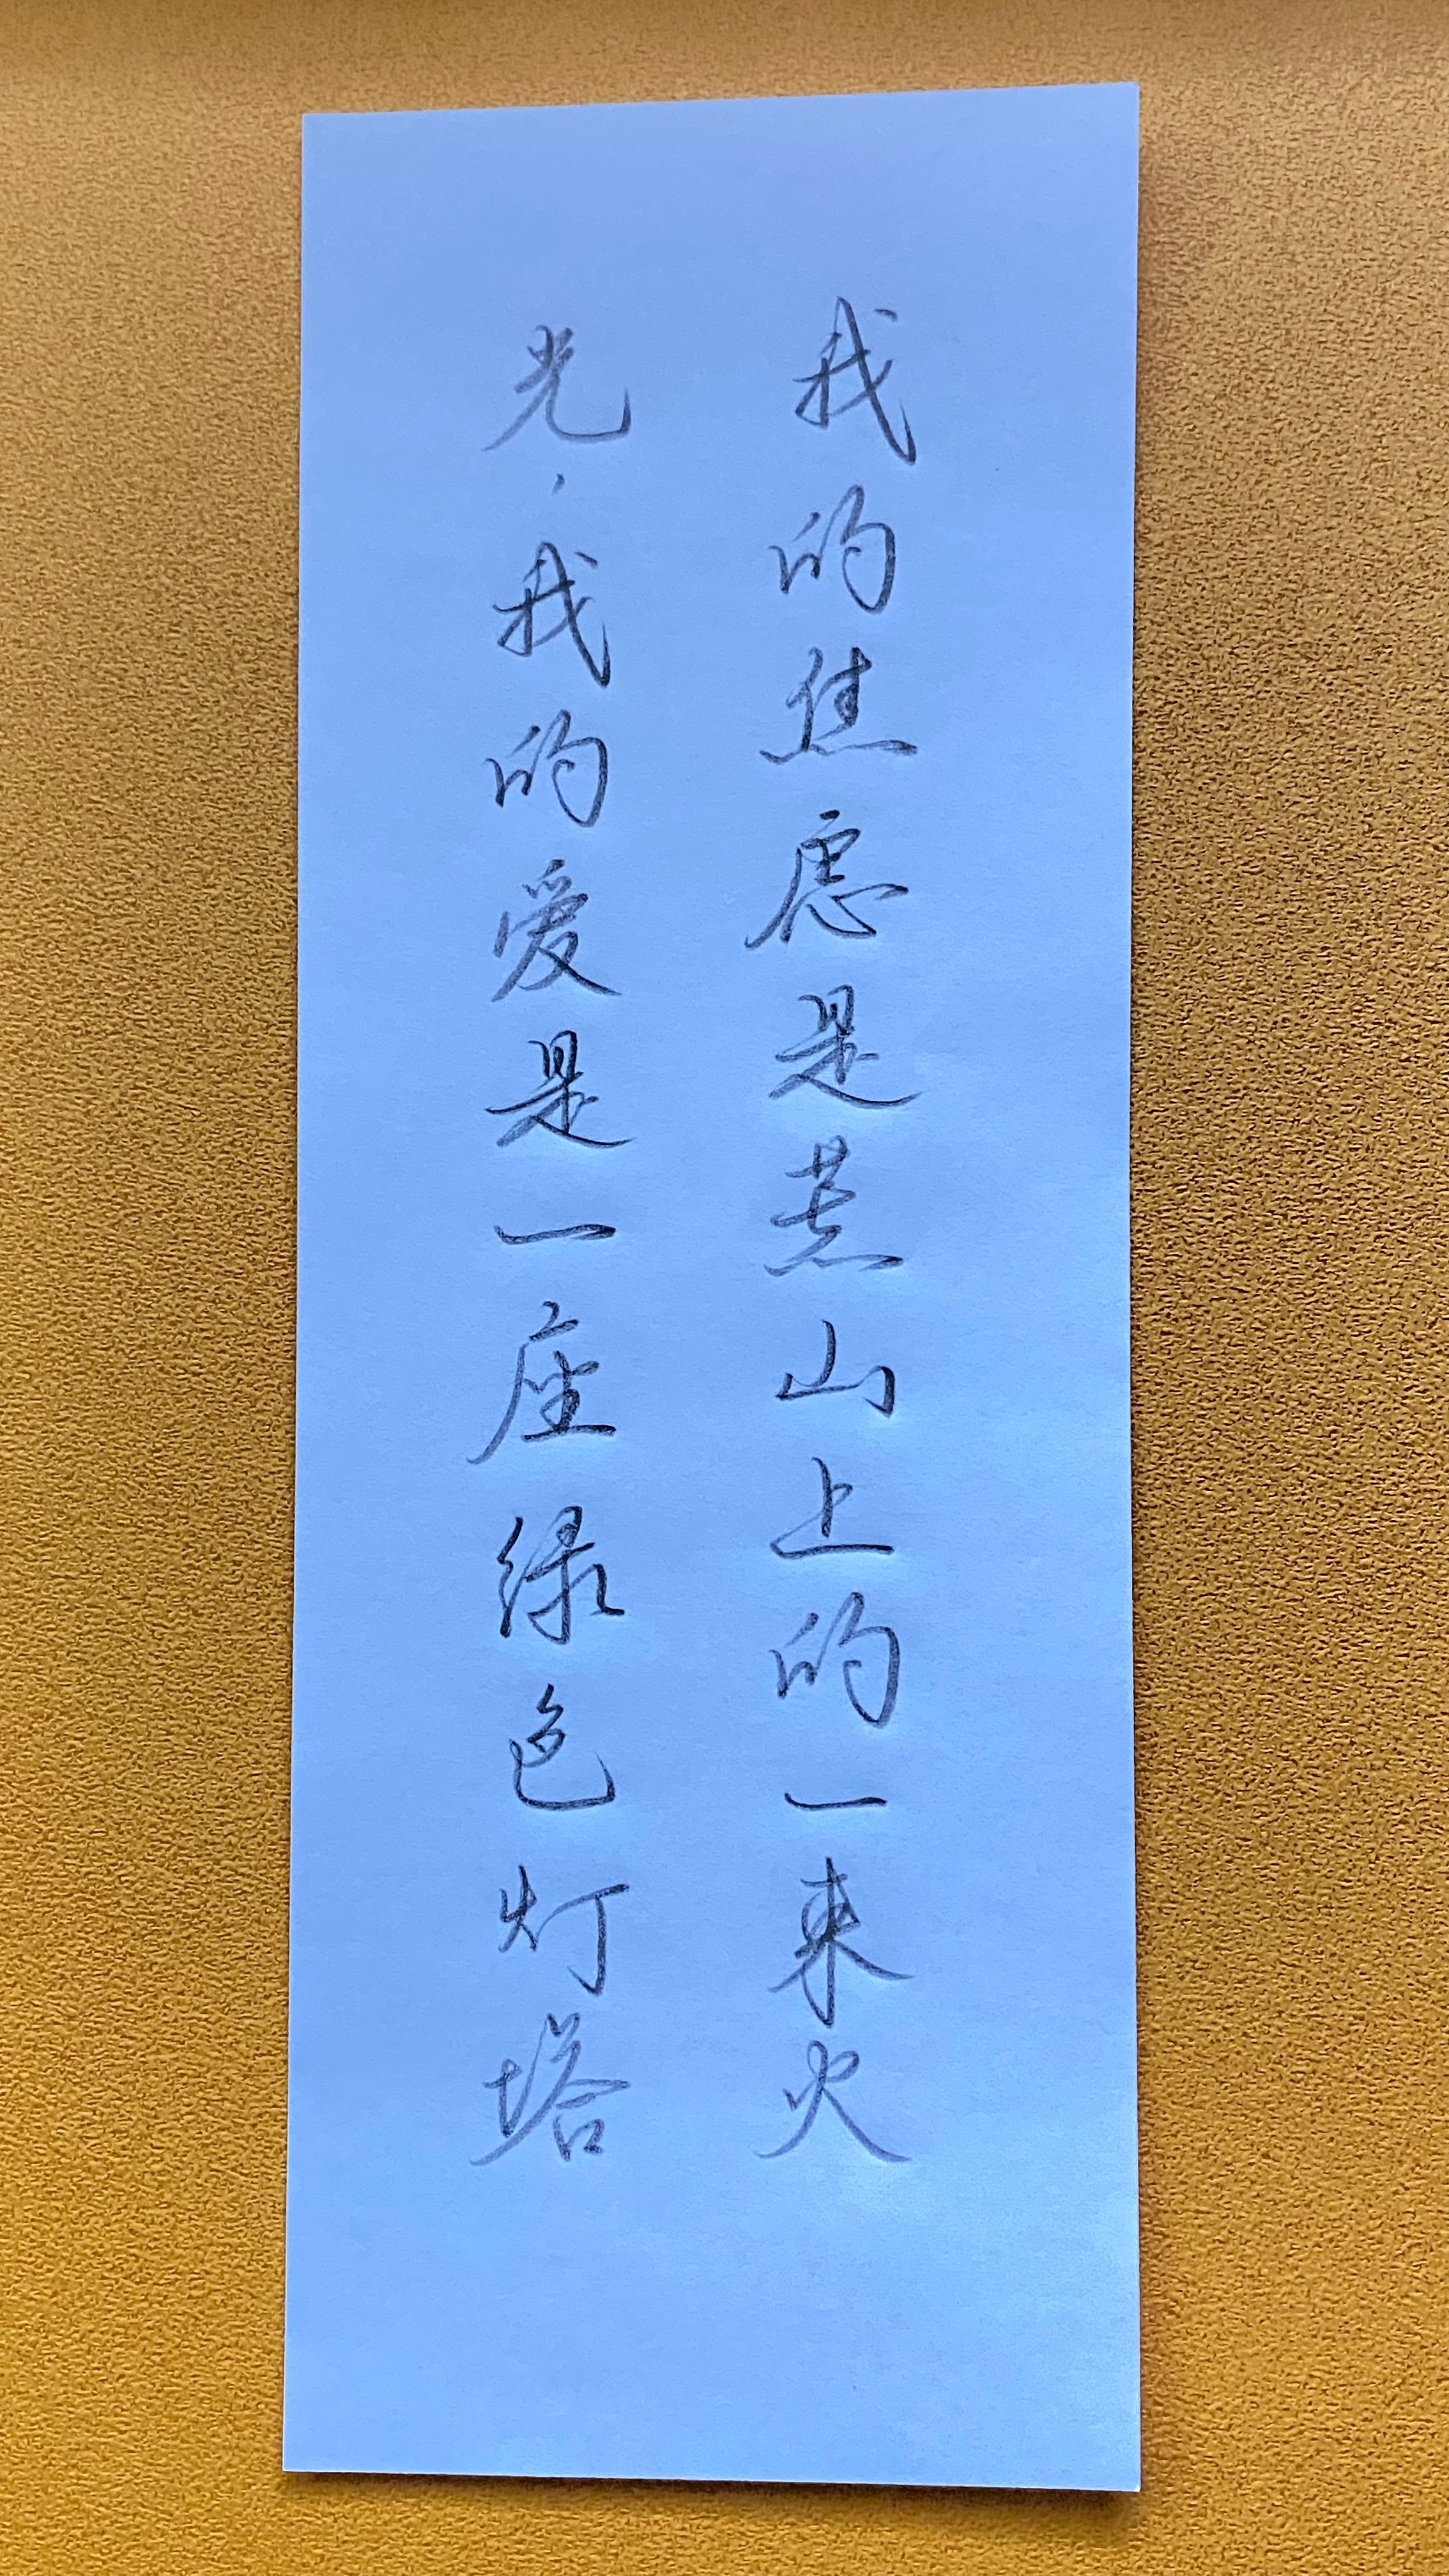 我的焦虑是荒山上的一束火
光，我的爱是一座绿色灯塔